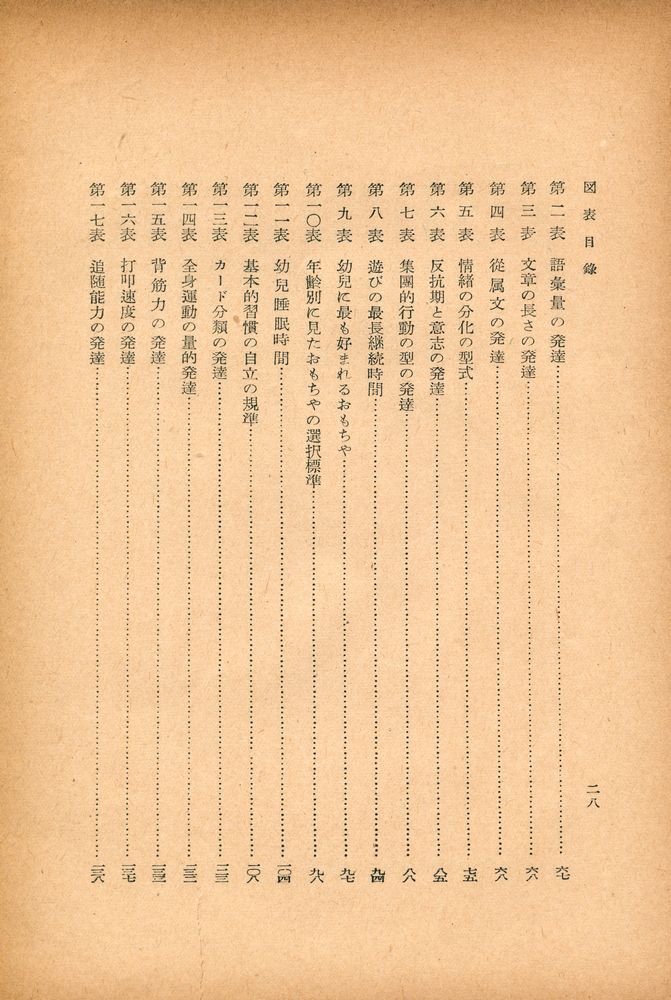 図表目録
二八
第二表 語彙量の発達……六七
第三表 文章の長さの発達……六八
第四表 從属文の発達……六八
第五表 情緒の分化の型式……七五
第六表 反抗期と意志の発達……八五
第七表 集團的行動の型の発達……八八
第八表 遊びの最長継続時間……九四
第九表 幼兒に最も好まれるおもちや……九七
第一〇表 年齡別に見たおもちやの選択標準……九八
第一一表 幼兒睡眠時間……一〇四
第一二表 基本的習慣の自立の規準……一〇八
第一三表 カード分類の発達……
第一四表 全身運動の量的発達……
第一五表 背筋力の発達……
第一六表 打叩速度の発達……一三七
第一七表 追随能力の発達……一三八